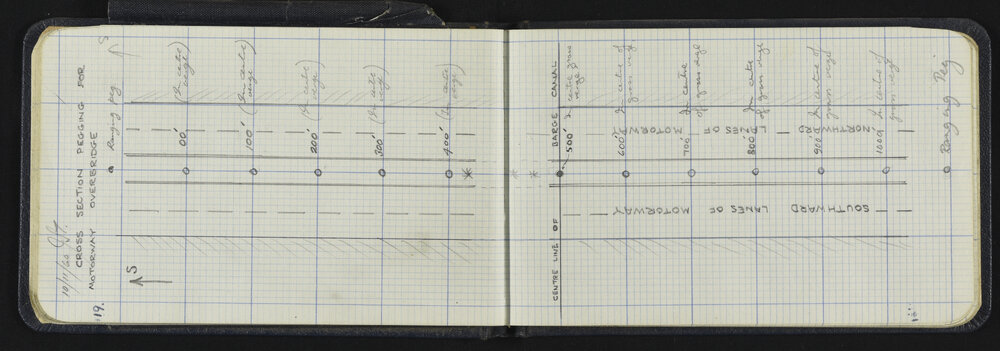 10/11/60
CROSS SECTION PEGGING FOR
MOTORWAY OVERBRIDGE
19.
S
S
Ranging Peg
00' (In centre verge)
100' (In centre verge)
200' (In centre verge)
300' (In centre verge)
400' (In centre verge)
CENTRE LINE OF BARGE CANAL
500' In centre grass verge
600' In centre of grass verge
700' In centre of grass verge
800' In centre of grass verge
900' In centre of grass verge
1000 In centre of grass verge
NORTHWARD LANES OF MOTORWAY
SOUTHWARD LANES OF MOTORWAY
Ranging Peg